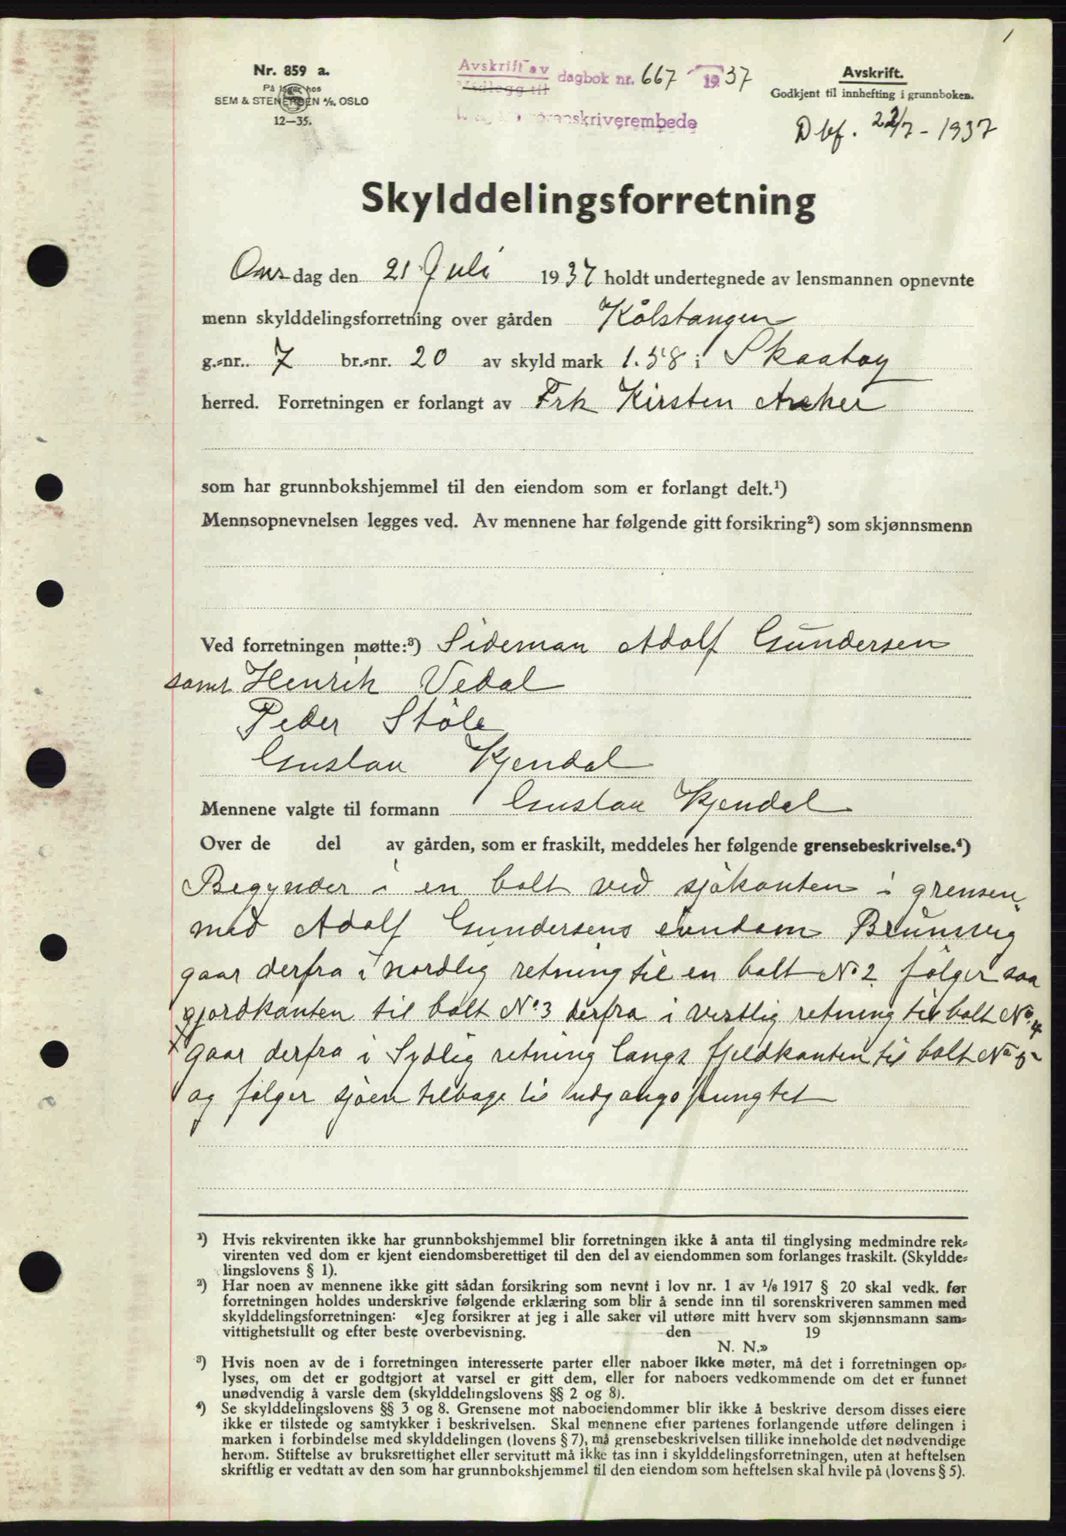 1
Nr. 859 a.
På lager hos
SEM & STENERSEN A/S, OSLO
12—35.
Avskrift av
Vedlegg til
dagbok nr. 667 1937
sorenskriverembede
Avskrift.
Godkjent til innhefting i grunnboken.
Dbf. 22/7 - 1937
Skylddelingsforretning
Onsdag den 21 Juli 1937 holdt undertegnede av lensmannen opnevnte
menn skylddelingsforretning over gården Kålstangen
g.-nr. 7 br.-nr. 20 av skyld mark 1.58 i Skaatøy
herred. Forretningen er forlangt av Frk Kirsten Anker
som har grunnbokshjemmel til den eiendom som er forlangt delt.¹)
Mennsopnevnelsen legges ved. Av mennene har følgende gitt forsikring²) som skjønnsmenn
Ved forretningen møtte:³) Sideman Adolf Gundersen
samt Henrik Vedal
Peder Støle
Gustav Kjendal
Mennene valgte til formann Gustav Kjendal
Over de del av gården, som er fraskilt, meddeles her følgende grensebeskrivelse.⁴)
Begynder i en bolt ved sjøkanten i grensen
med Adolf Gundersens eiendom Brunsvig
gaar derfra i nordlig retning til en bolt No 2 følger saa
gjordkanten til bolt No 3 derfra i vestlig retning til bolt No 4
gaar derfra i Sydlig retning langs fjeldkanten til bolt No 5
og følger sjøen tilbage til udgangspungtet
¹) Hvis rekvirenten ikke har grunnbokshjemmel blir forretningen ikke å anta til tinglysing medmindre rek-
virenten ved dom er kjent eiendomsberettiget til den del av eiendommen som forlanges fraskilt. (Skyldde-
lingslovens § 1).
²) Har noen av mennene ikke gitt sådan forsikring som nevnt i lov nr. 1 av 1/6 1917 § 20 skal vedk. før
forretningen holdes underskrive følgende erklæring som blir å sende inn til sorenskriveren sammen med
skylddelingsforretningen: «Jeg forsikrer at jeg i alle saker vil utføre mitt hverv som skjønnsmann sam-
vittighetsfullt og efter beste overbevisning. den 19
N. N.»
³) Hvis noen av de i forretningen interesserte parter eller naboer ikke møter, må det i forretningen op-
lyses, om det er godtgjort at varsel er gitt dem, eller for naboers vedkommende om det er funnet
unødvendig å varsle dem (skylddelingslovens §§ 2 og 8).
⁴) Se skylddelingslovens §§ 3 og 8. Grensene mot naboeiendommer blir ikke å beskrive dersom disses eiere
ikke er tilstede og samtykker i beskrivelsen. Skal mennene efter partenes forlangende utføre delingen i
marken i forbindelse med skylddelingen (lovens § 7), må grensebeskrivelsen tillike inneholde det nødvendige
herom. Stiftelse av bruksrettighet eller servitutt må ikke tas inn i skylddelingsforretningen, uten at heftelsen
skriftlig er vedtatt av den som har grunnbokshjemmel til den eiendom som heftelsen skal hvile på (lovens § 5).